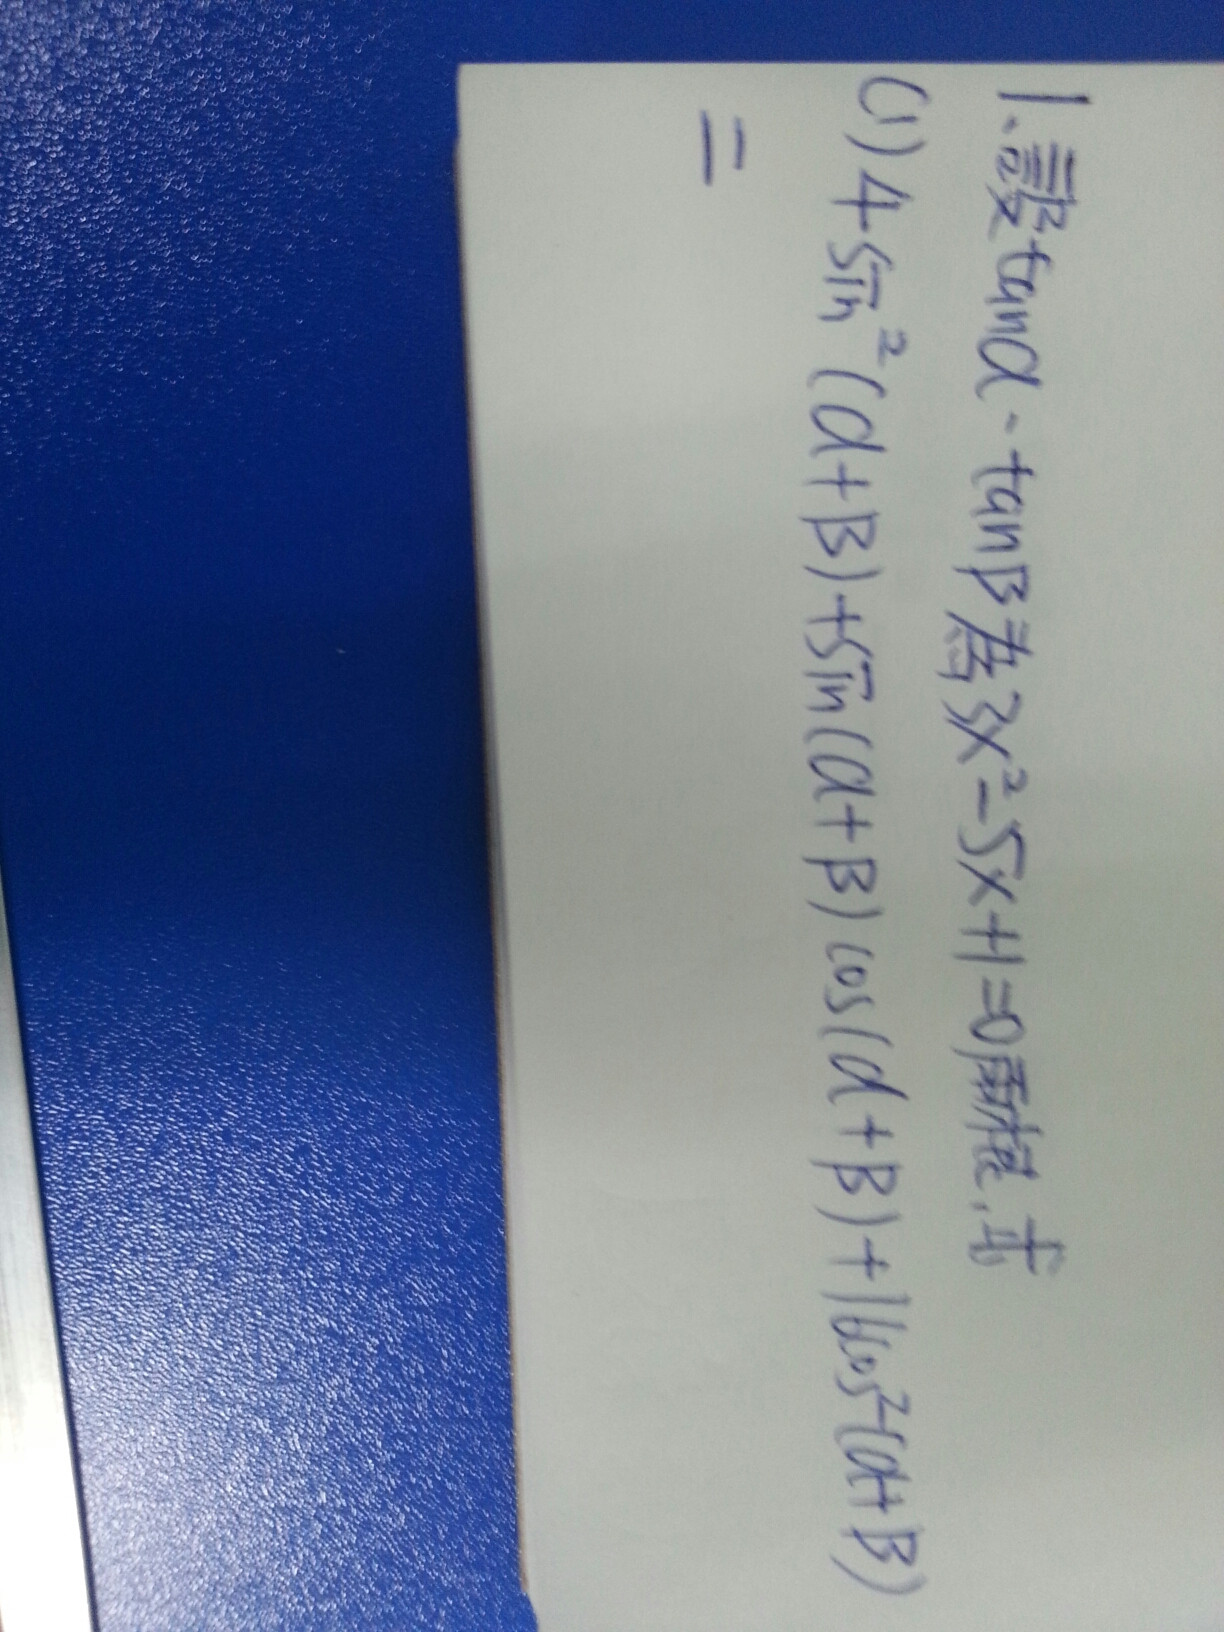 1、設tanα、tanβ為3x²-5x+1=0兩根,求
(1) 4sin²(α+β)+sin(α+β)cos(α+β)+16cos²(α+β)
=